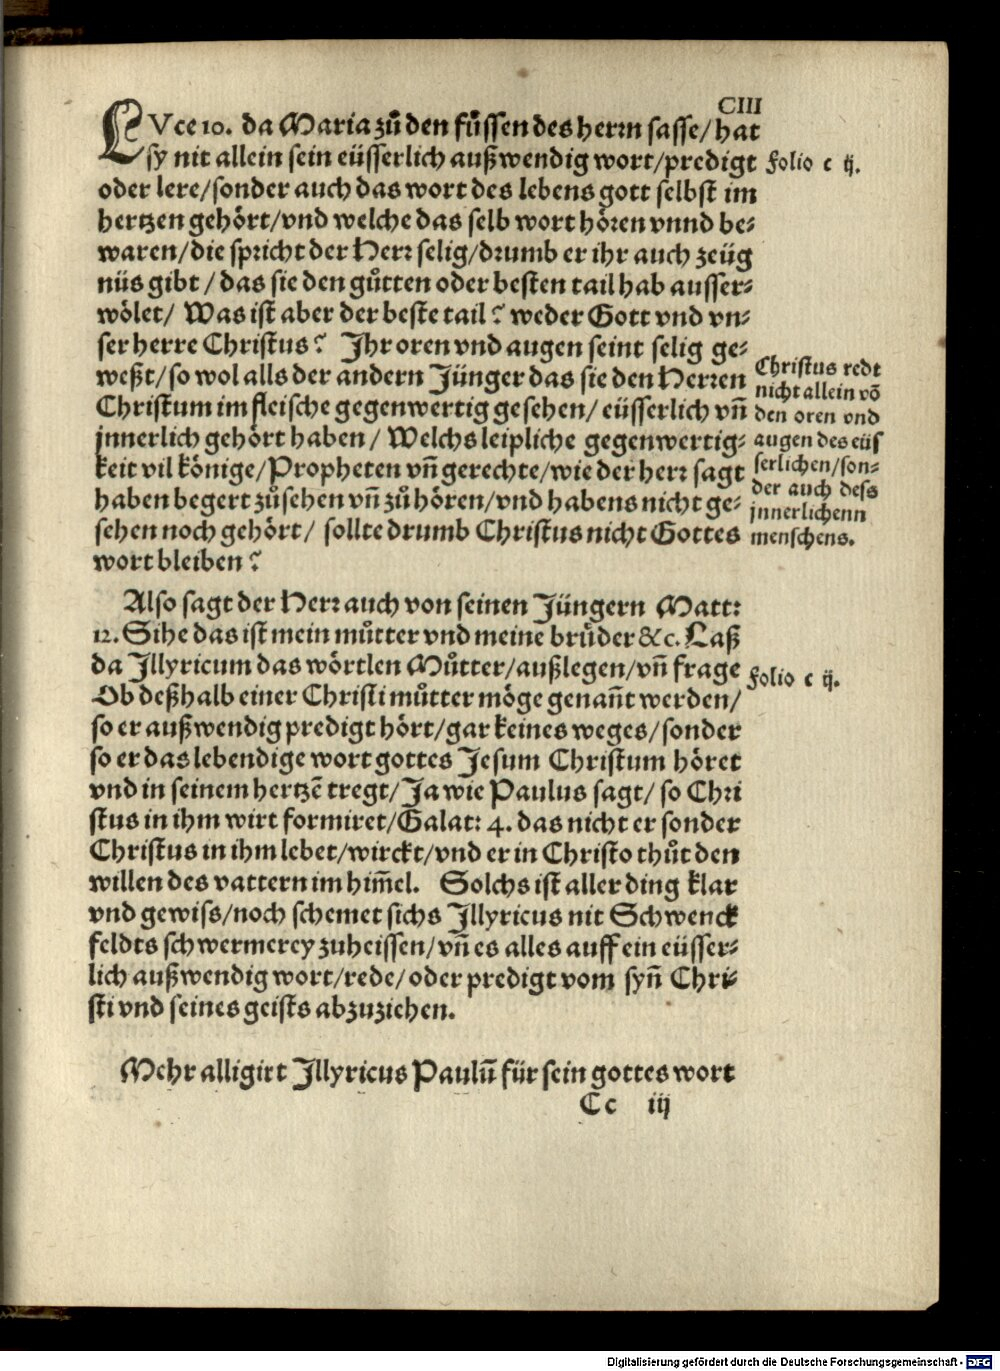 CIII
LVce 10. da Maria zů den fůssen des herrn sasse/ hat
sy nit allein sein eüsserlich außwendig wort/predigt
Folio c ij.
oder lere/sonder auch das wort des lebens gott selbst im
hertzen gehört/vnd welche das selb wort hören vnnd be⸗
waren/die spricht der Herr selig/drumb er ihr auch zeüg
nüs gibt / das sie den gůtten oder besten tail hab ausser⸗
wölet/ Was ist aber der beste tail? weder Gott vnd vn⸗
ser herre Christus? Ihr oren vnd augen seint selig ge⸗
weßt/so wol alls der andern Jünger das sie den Herren
Christum im fleische gegenwertig gesehen/ eüsserlich vñ
jnnerlich gehört haben/ Welchs leipliche gegenwertig⸗
keit vil könige/Propheten vñ gerechte/wie der herr sagt
haben begert zů sehen vñ zů hören/vnd habens nicht ge⸗
sehen noch gehört/ sollte drumb Christus nicht Gottes
wort bleiben?
Christus redt
nicht allein võ
den oren vnd
augen des eüs
serlichen/son⸗
der auch dess
jnnerlichenn
menschens.
Also sagt der Herr auch von seinen Jüngern Matt:
12. Sihe das ist mein můtter vnd meine brůder &c. Laß
da Illyricum das wörtlen Můtter/außlegen/vñ frage
Folio c ij.
Ob deßhalb einer Christi můtter möge genañt werden/
so er außwendig predigt hört/gar keines weges/sonder
so er das lebendige wort gottes Jesum Christum höret
vnd in seinem hertzẽ tregt/Ja wie Paulus sagt/ so Chri
stus in ihm wirt formiret/Galat: 4. das nicht er sonder
Christus in ihm lebet/wirckt/vnd er in Christo thůt den
willen des vattern im him̃el. Solchs ist aller ding klar
vnd gewiss/noch schemet sichs Illyricus nit Schwenck
feldts schwermerey zuheissen/vñ es alles auff ein eüsser⸗
lich außwendig wort/rede/oder predigt vom syñ Chri⸗
sti vnd seines geists abzuziehen.
Mehr alligirt Illyricus Paulũ für sein gottes wort
Cc iij
Digitalisierung gefördert durch die Deutsche Forschungsgemeinschaft - DFG